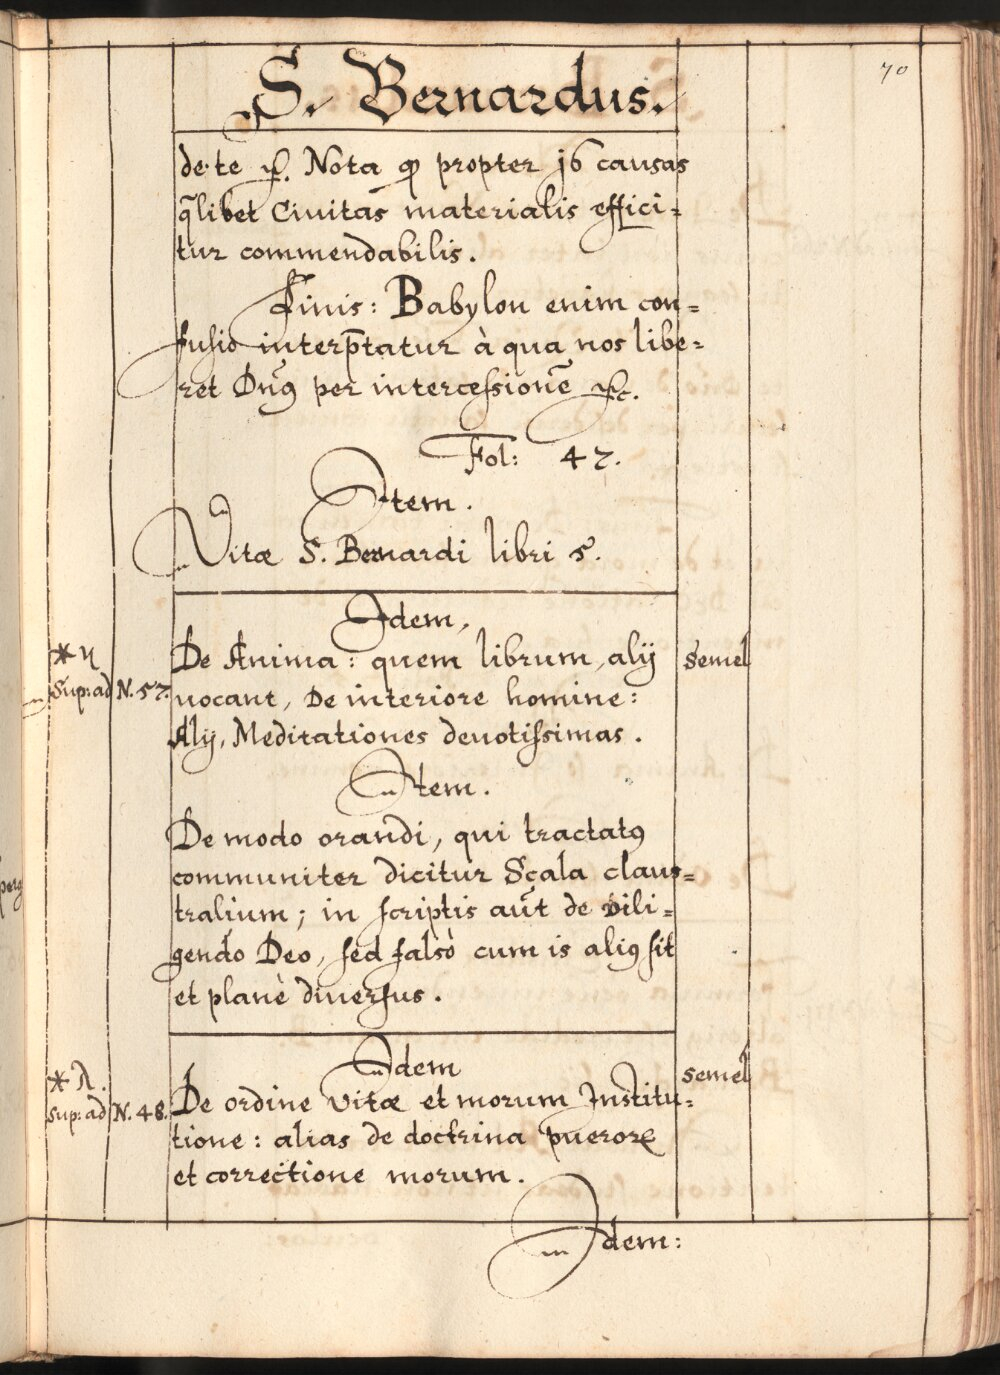 70
S. Bernardus.
de te ꝛc. Nota qͦ propter 16 causas
q̃libet Ciuitas materialis effici=
tur commendabilis.
Finis: Babylon enim con=
fusio interp̃tatur à qua nos libe=
ret Dñ9 per intercessionẽ ꝛc.
Fol: 47.
Item.
Vitæ S. Bernardi libri 5.
Idem,
De Anima: quem librum, alij
semel
Sup: ad N. 57. uocant, De interiore homine:
Alij, Meditationes deuotissimas.
Item.
De modo orandi, qui tractat9
communiter dicitur Scala claus=
tralium; in scriptis aũt de dili=
gendo Deo, sed falsò cum is ali9 sit
et planè diuersus.
Idem
* λ.
semel
Sup: ad N. 48. De ordine vitæ et morum Institu=
tione: alias de doctrina pueroꝝ
et correctione morum.
Idem: